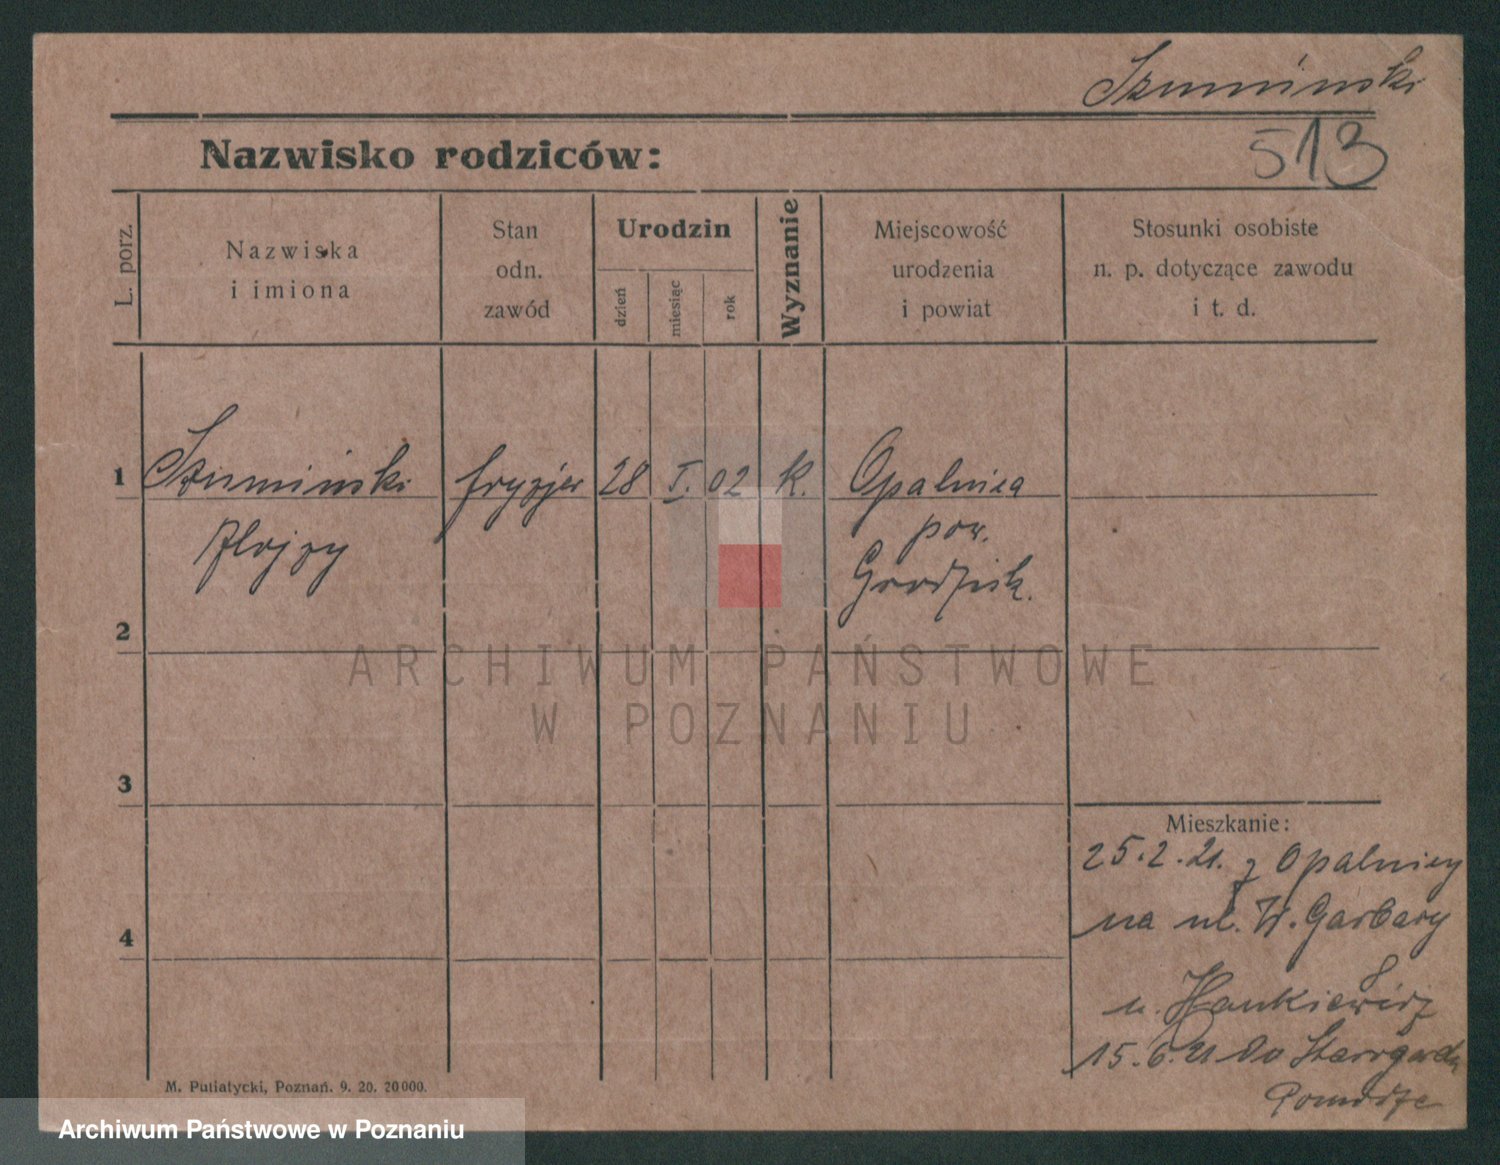 Szumiński
513
Nazwisko rodziców:
L. porz.
Nazwiska
i imiona
Stan
odn.
zawód
Urodzin
dzień
miesiąc
rok
Wyznanie
Miejscowość
urodzenia
i powiat
Stosunki osobiste
n. p. dotyczące zawodu
i t. d.
1 Szumiński fryzjer 28 I. 02 k. Opalnica
Alojzy pow.
Grodzisk.
2
ARCHIWUM PAŃSTWOWE
W POZNANIU
3
Mieszkanie:
25.2.21. z Opalnicy
na ul. W. Garbary
4
8
u. Hankiewicz
15.6.21 do Starogardu
Pomorze
M. Putiatycki, Poznań. 9. 20. 20000.
Archiwum Państwowe w Poznaniu